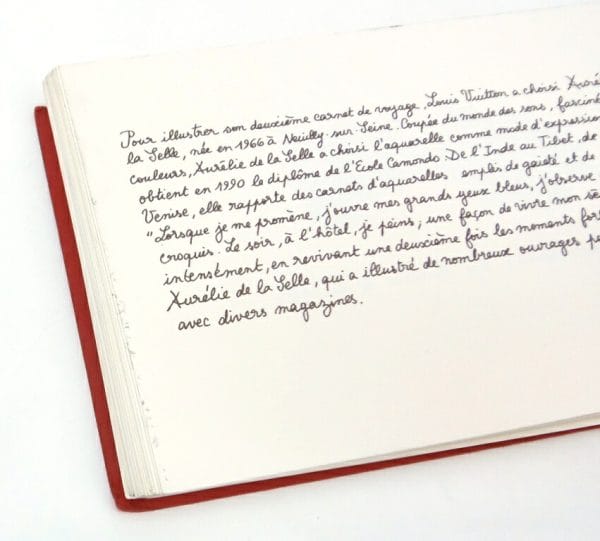 Pour illustrer son deuxième carnet de voyage, Louis Vuitton a choisi Auré
la Selle, née en 1966 à Neuilly-sur-Seine. Coupée du monde des sons, fasciné
couleurs, Aurélie de la Selle a choisi l'aquarelle comme mode d'expression
obtient en 1990 le diplôme de l'Ecole Camondo. De l'Inde au Tibet, de
Venise, elle rapporte des carnets d'aquarelles emplis de gaieté et de
"Lorsque je me promène, j'ouvre mes grands yeux bleus, j'observe
croquis. Le soir, à l'hôtel, je peins, une façon de vivre mon
intensément, en revivant une deuxième fois les moments for
Aurélie de la Selle, qui a illustré de nombreux ouvrages
avec divers magazines.